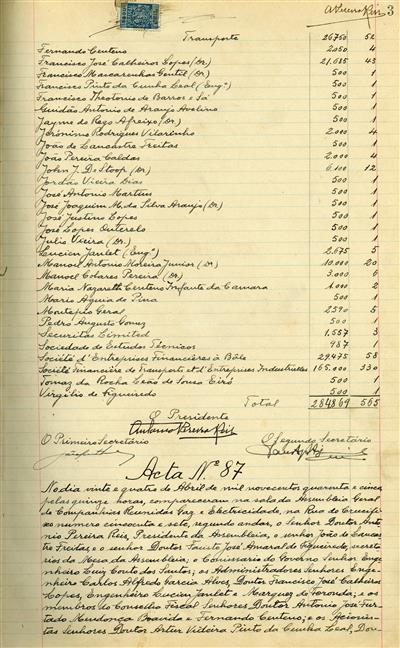 3
Transporte 26750 52
Fernando Centeno 2.050 4
Francisco José Calheiros Lopes (Dr) 21.615 43
Francisco Mascarenhas Gentil (Dr) 500 1
Francisco Pinto da Cunha Leal (Engº) 500 1
Francisco Theotonio de Barros e Sá 500 1
Guidão Antonio de Araujo Avelino 500 1
Jayme do Rego Afreixo (Dr) 500 1
Jerónimo Rodrigues Vilarinho 2.000 4
João de Lancastre Freitas 500 1
João Pereira Caldas 2.000 4
John J. De Stoop (Dr) 6.100 12
Jordão Vieira Dias 500 1
José Antonio Martins 500 1
José Joaquim M. da Silva Araujo (Dr) 500 1
José Justino Lopes 500 1
José Lopes Outerelo 500 1
Julio Vieira (Dr) 500 1
Lucien Janlet (Engº) 2.675 5
Manoel Antonio Moreira Junior (Dr) 10.000 20
Manoel Colares Pereira (Dr) 3.000 6
Maria Nazareth Centeno Infante da Camara 1.000 2
Mario Aguia de Pina 500 1
Montepio Geral 2.590 5
Pedro Augusto Gomez 500 1
Securitas Limited 1,557 3
Sociedade de Estudos Técnicos 987 1
Société d'Entreprises Financières à Bâle 29.475 58
Société Financière de Transports et d'Entreprises Industrielles 165.000 330
Tomaz da Rocha Leão de Sousa Eiró 500 1
Virgilio de Figueiredo 500 1
Total 284869 565
O Presidente
Antonio Pereira Reis
O Primeiro Secretário O Segundo Secretário
Acta Nº 87
No dia vinte e quatro de Abril de mil novecentos quarenta e cinco
pelas quinze horas, compareceram na sala da Assembleia Geral
de Companhias Reunidas Gaz e Electricidade, na Rua do Crucifi-
xo numero cincoenta e sete, segundo andar, o Senhor Doutor Anto-
nio Pereira Reis, Presidente da Assembleia, o senhor João de Lancas-
tre Freitas, e o senhor Doutor Fausto José Amaral de Figueiredo, secreta-
rios da Mesa da Assembleia; o Comissario do Governo Senhor Enge-
nheiro Luiz Couto dos Santos; os Administradores Senhores Enge-
nheiro Carlos Alfredo Garcia Alves, Doutor Francisco José Calheiros
Lopes, Engenheiro Lucien Janlet e Marquez de Foronda; e os
membros do Conselho Fiscal Senhores Doutor Antonio José Fur-
tado Mendonça Boavida e Fernando Centeno; e os Acionis-
tas Senhores Doutor Artur Videira Pinto da Cunha Leal, Dou-